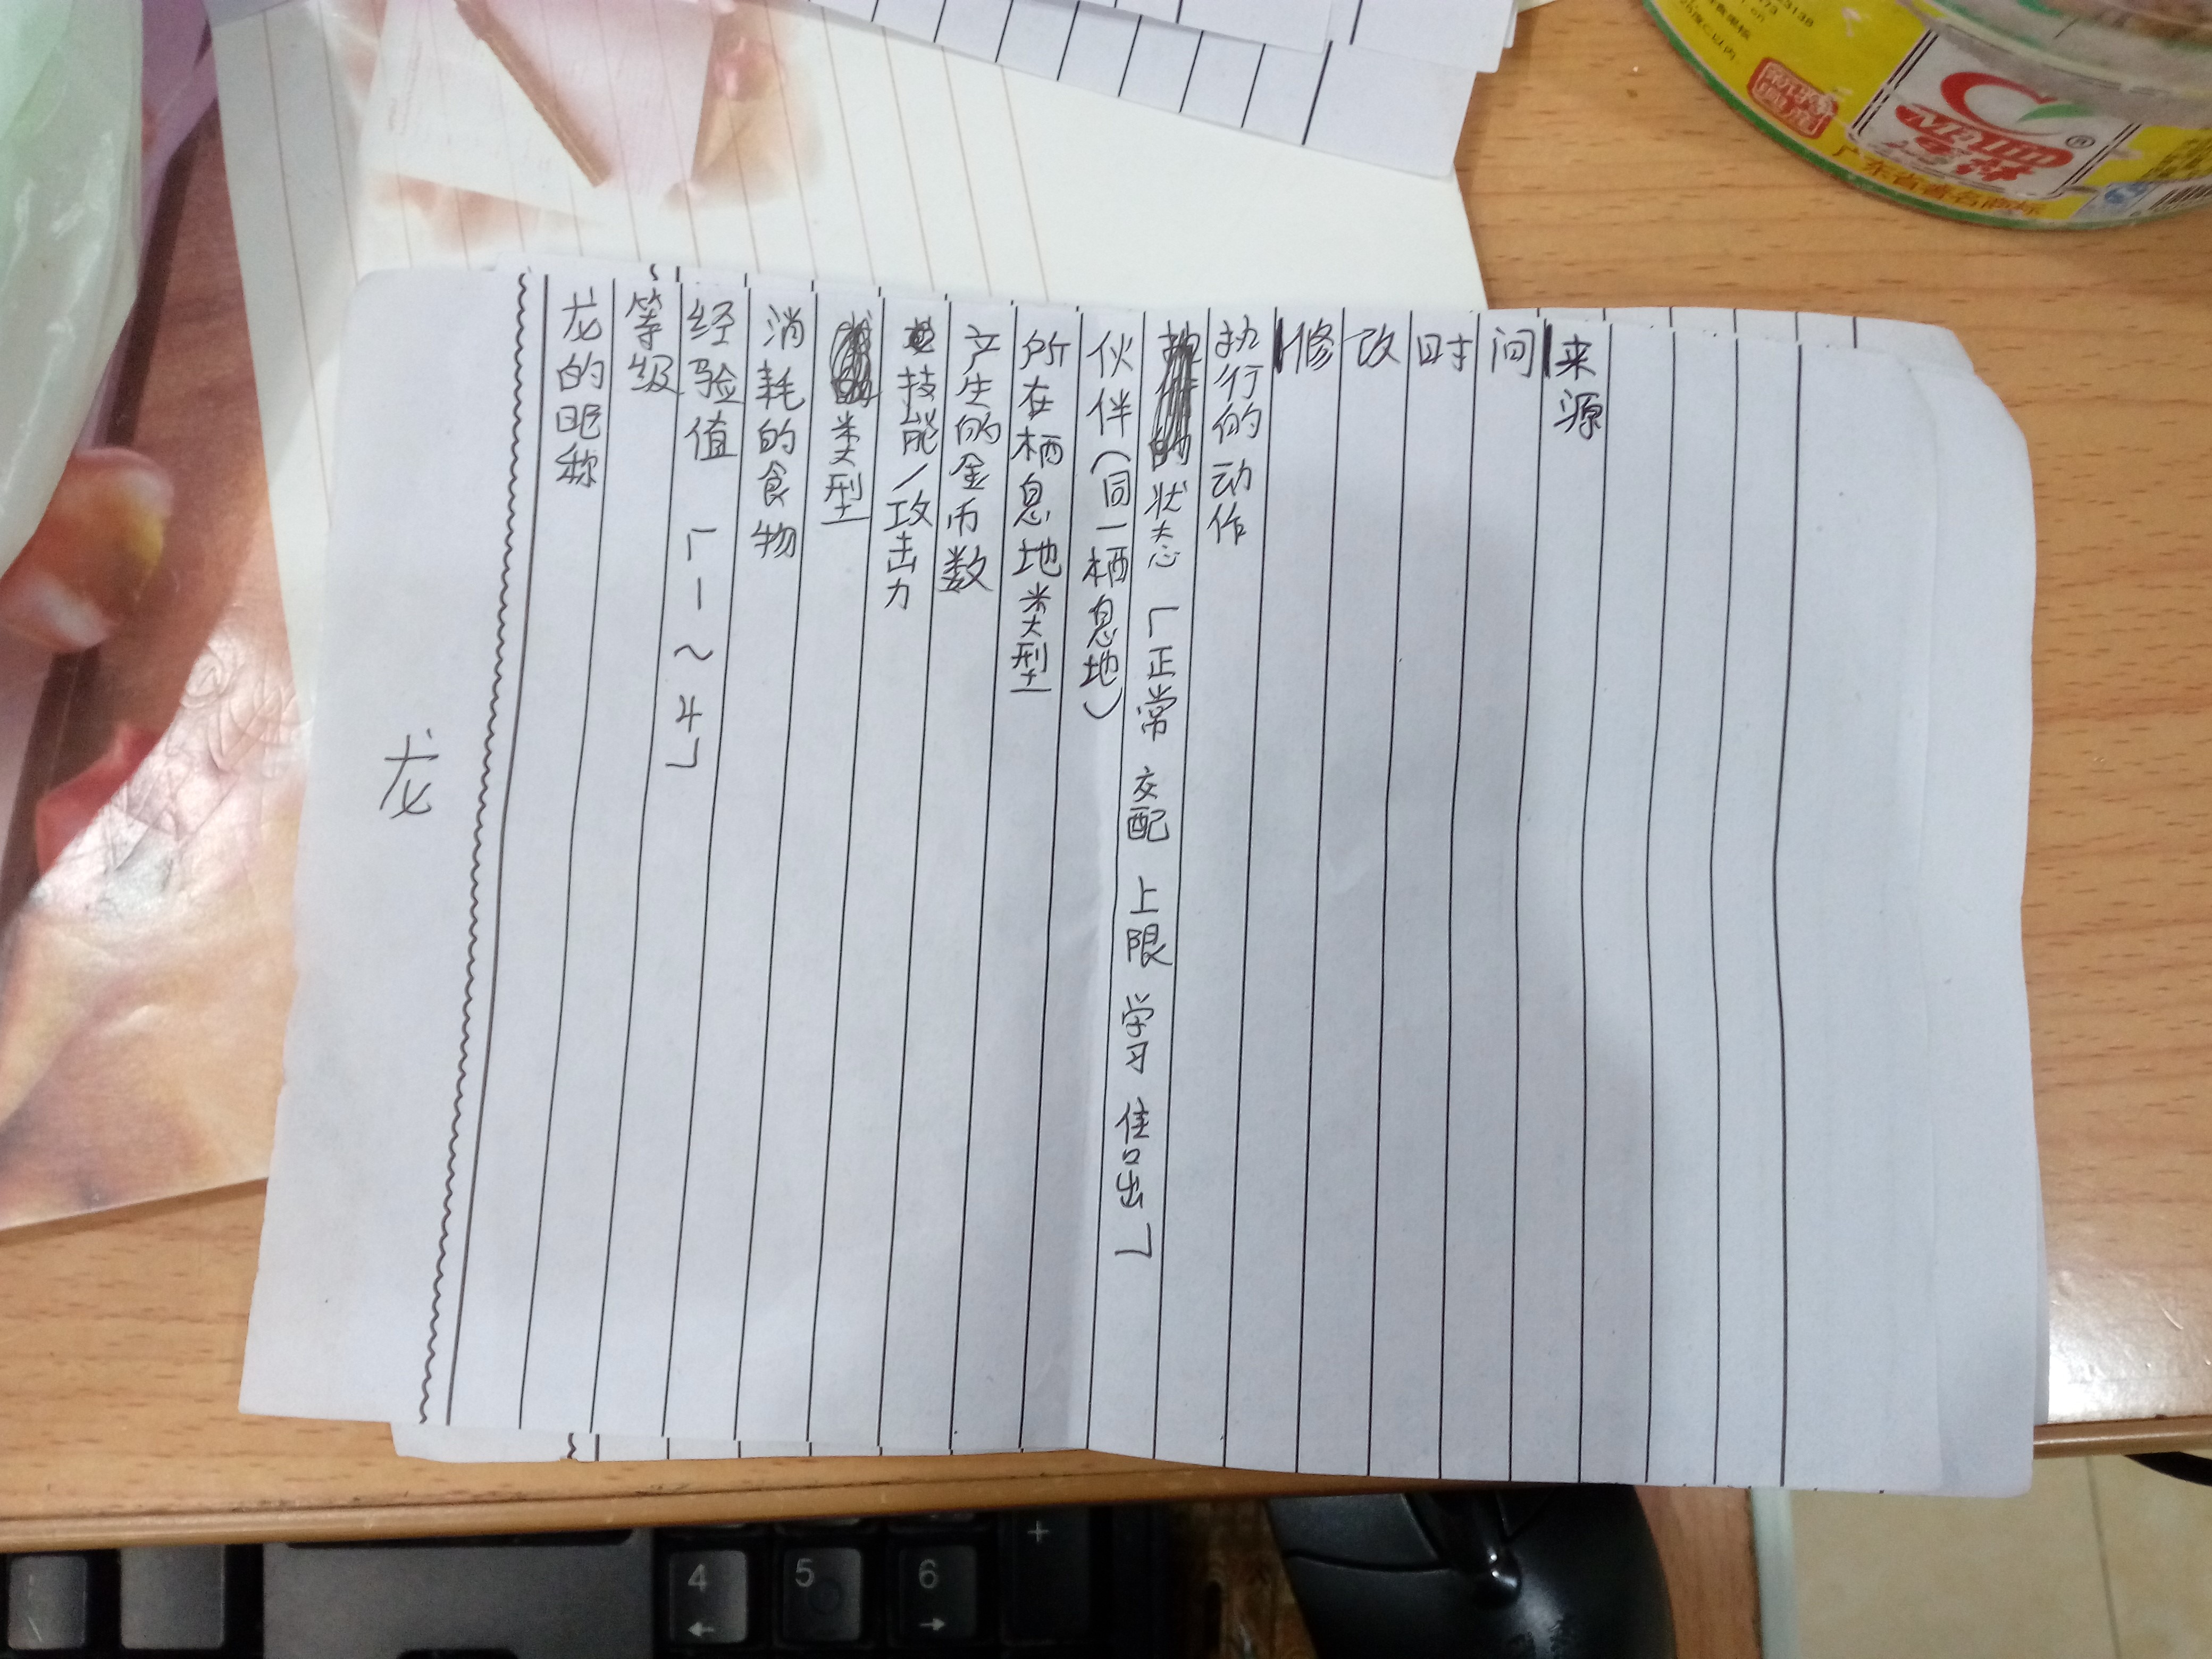 龙
龙的昵称
等级
经验值「1~4」
消耗的食物
类型
技能/攻击力
产生的金币数
所在栖息地类型
伙伴(同一栖息地)
状态「正常 交配 上限 学习 售出」
执行的动作
修改时间
来源
广东省著名商标
4
5
6
+